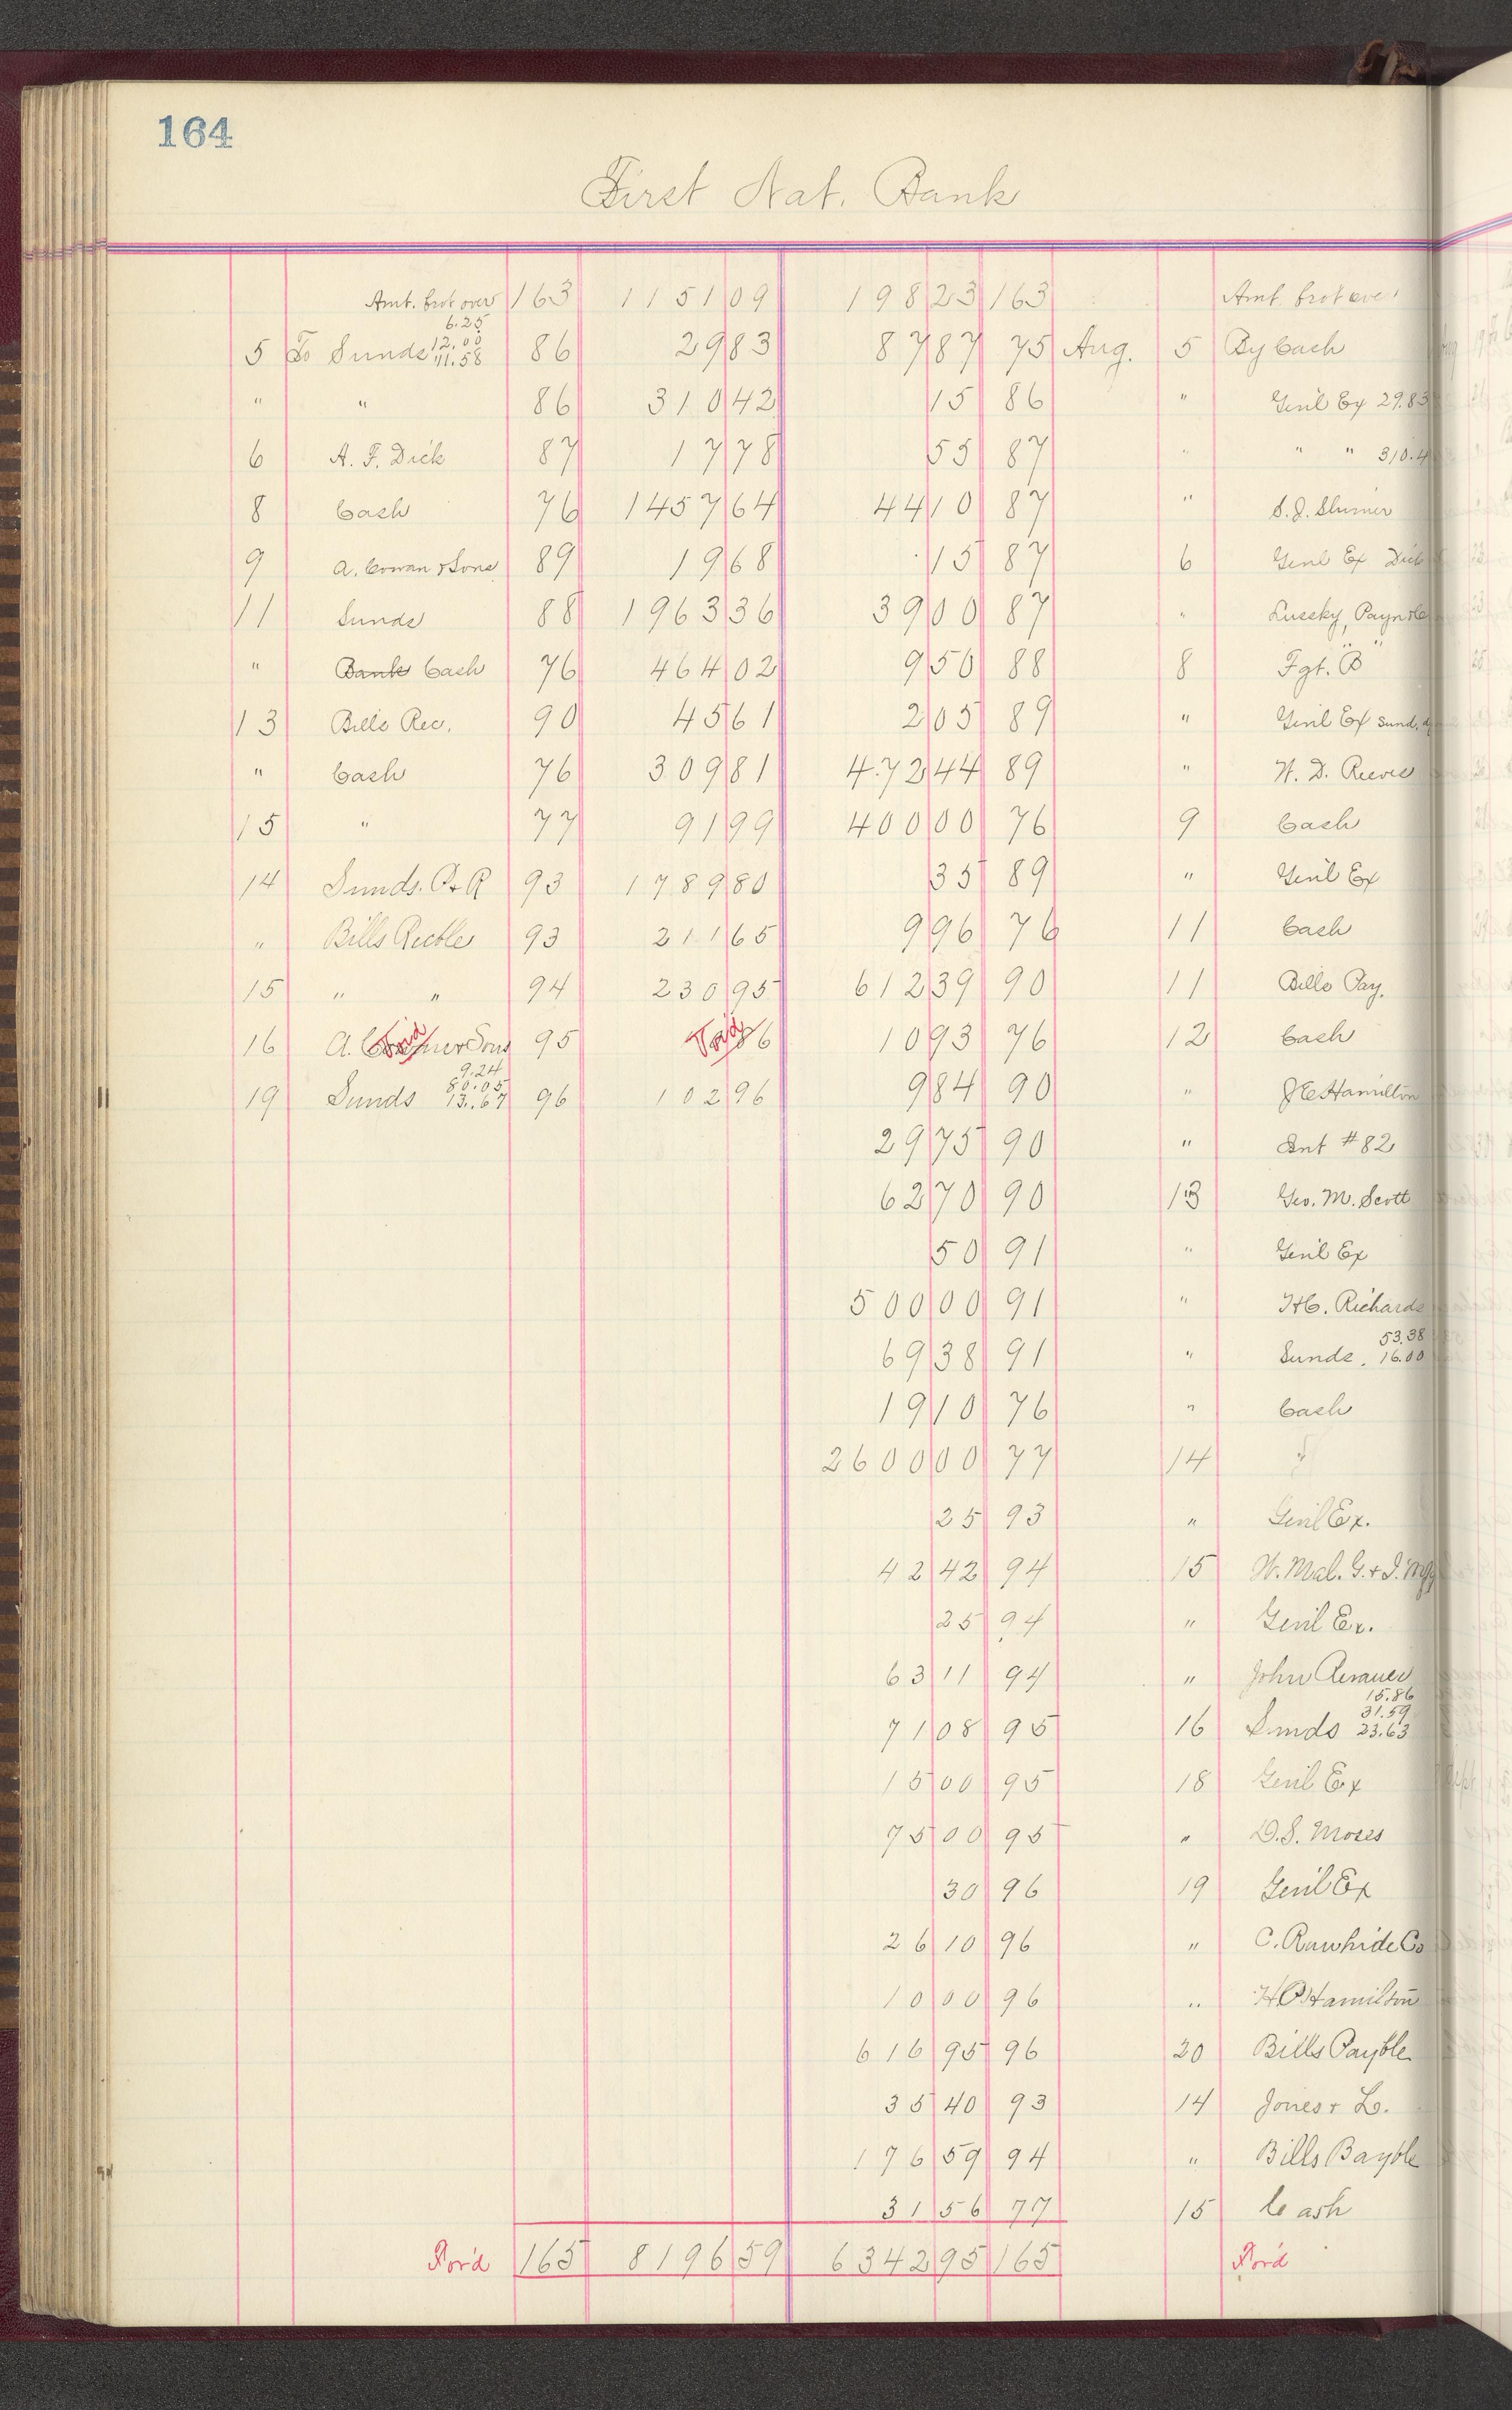 164
First Nat. Bank
Amt. brot over 163 1151 09 198 23 163 Amt. brot over
6.25
12.00
5 To Sunds 11.58 86 29 83 87 87 75 Aug. 5 By Cash
" " 86 310 42 15 86 " Gen'l Ex 29.83
6 A. F. Dick 87 17 78 55 87 " " " 310.4
8 Cash 76 1457 64 44 10 87 " S. J. Shimer
9 A. Cowan & Sons 89 19 68 15 87 6 Genl Ex Dick
11 Sunds 88 1963 36 39 00 87 " Luecky, Payn &Co
" Bank Cash 76 464 02 9 50 88 8 Fgt. "B"
13 Bills Rec. 90 45 61 2 05 89 " Genl Ex Sund.
" Cash 76 309 81 472 44 89 " W. D. Reeves
15 " 77 91 99 400 00 76 9 Cash
14 Sunds. P & R 93 1789 80 35 89 " Genl Ex
" Bills Recble 93 211 65 9 96 76 11 Cash
15 " " 94 230 95 612 39 90 11 Bills Pay.
16 A. Cowan & Sons Void 95 Void 6 10 93 76 12 Cash
9.24
80.05
19 Sunds 13.67 96 102 96 9 84 90 " J E Hamilton
29 75 90 " Int #82
62 70 90 13 Geo. M. Scott
50 91 " Genl Ex
500 00 91 " H C. Richards
53.38
69 38 91 " Sunds. 16.00
19 10 76 " Cash
2600 00 77 14 "
25 93 " Genl Ex.
42 42 94 15 W. Mal. G. & I. Mfg
25 94 " Genl Ex.
63 11 94 " John
15.86
31.59
71 08 95 16 Sunds 23.63
15 00 95 18 Genl Ex
75 00 95 " D. S. Moses
30 96 19 Genl Ex
26 10 96 " C. Rawhide Co
10 00 96 " H P Hamilton
616 95 96 20 Bills Payble
35 40 93 14 Jones & L.
176 59 94 " Bills Bayble
31 56 77 15 Cash
For'd 165 8196 59 6342 95 165 For'd